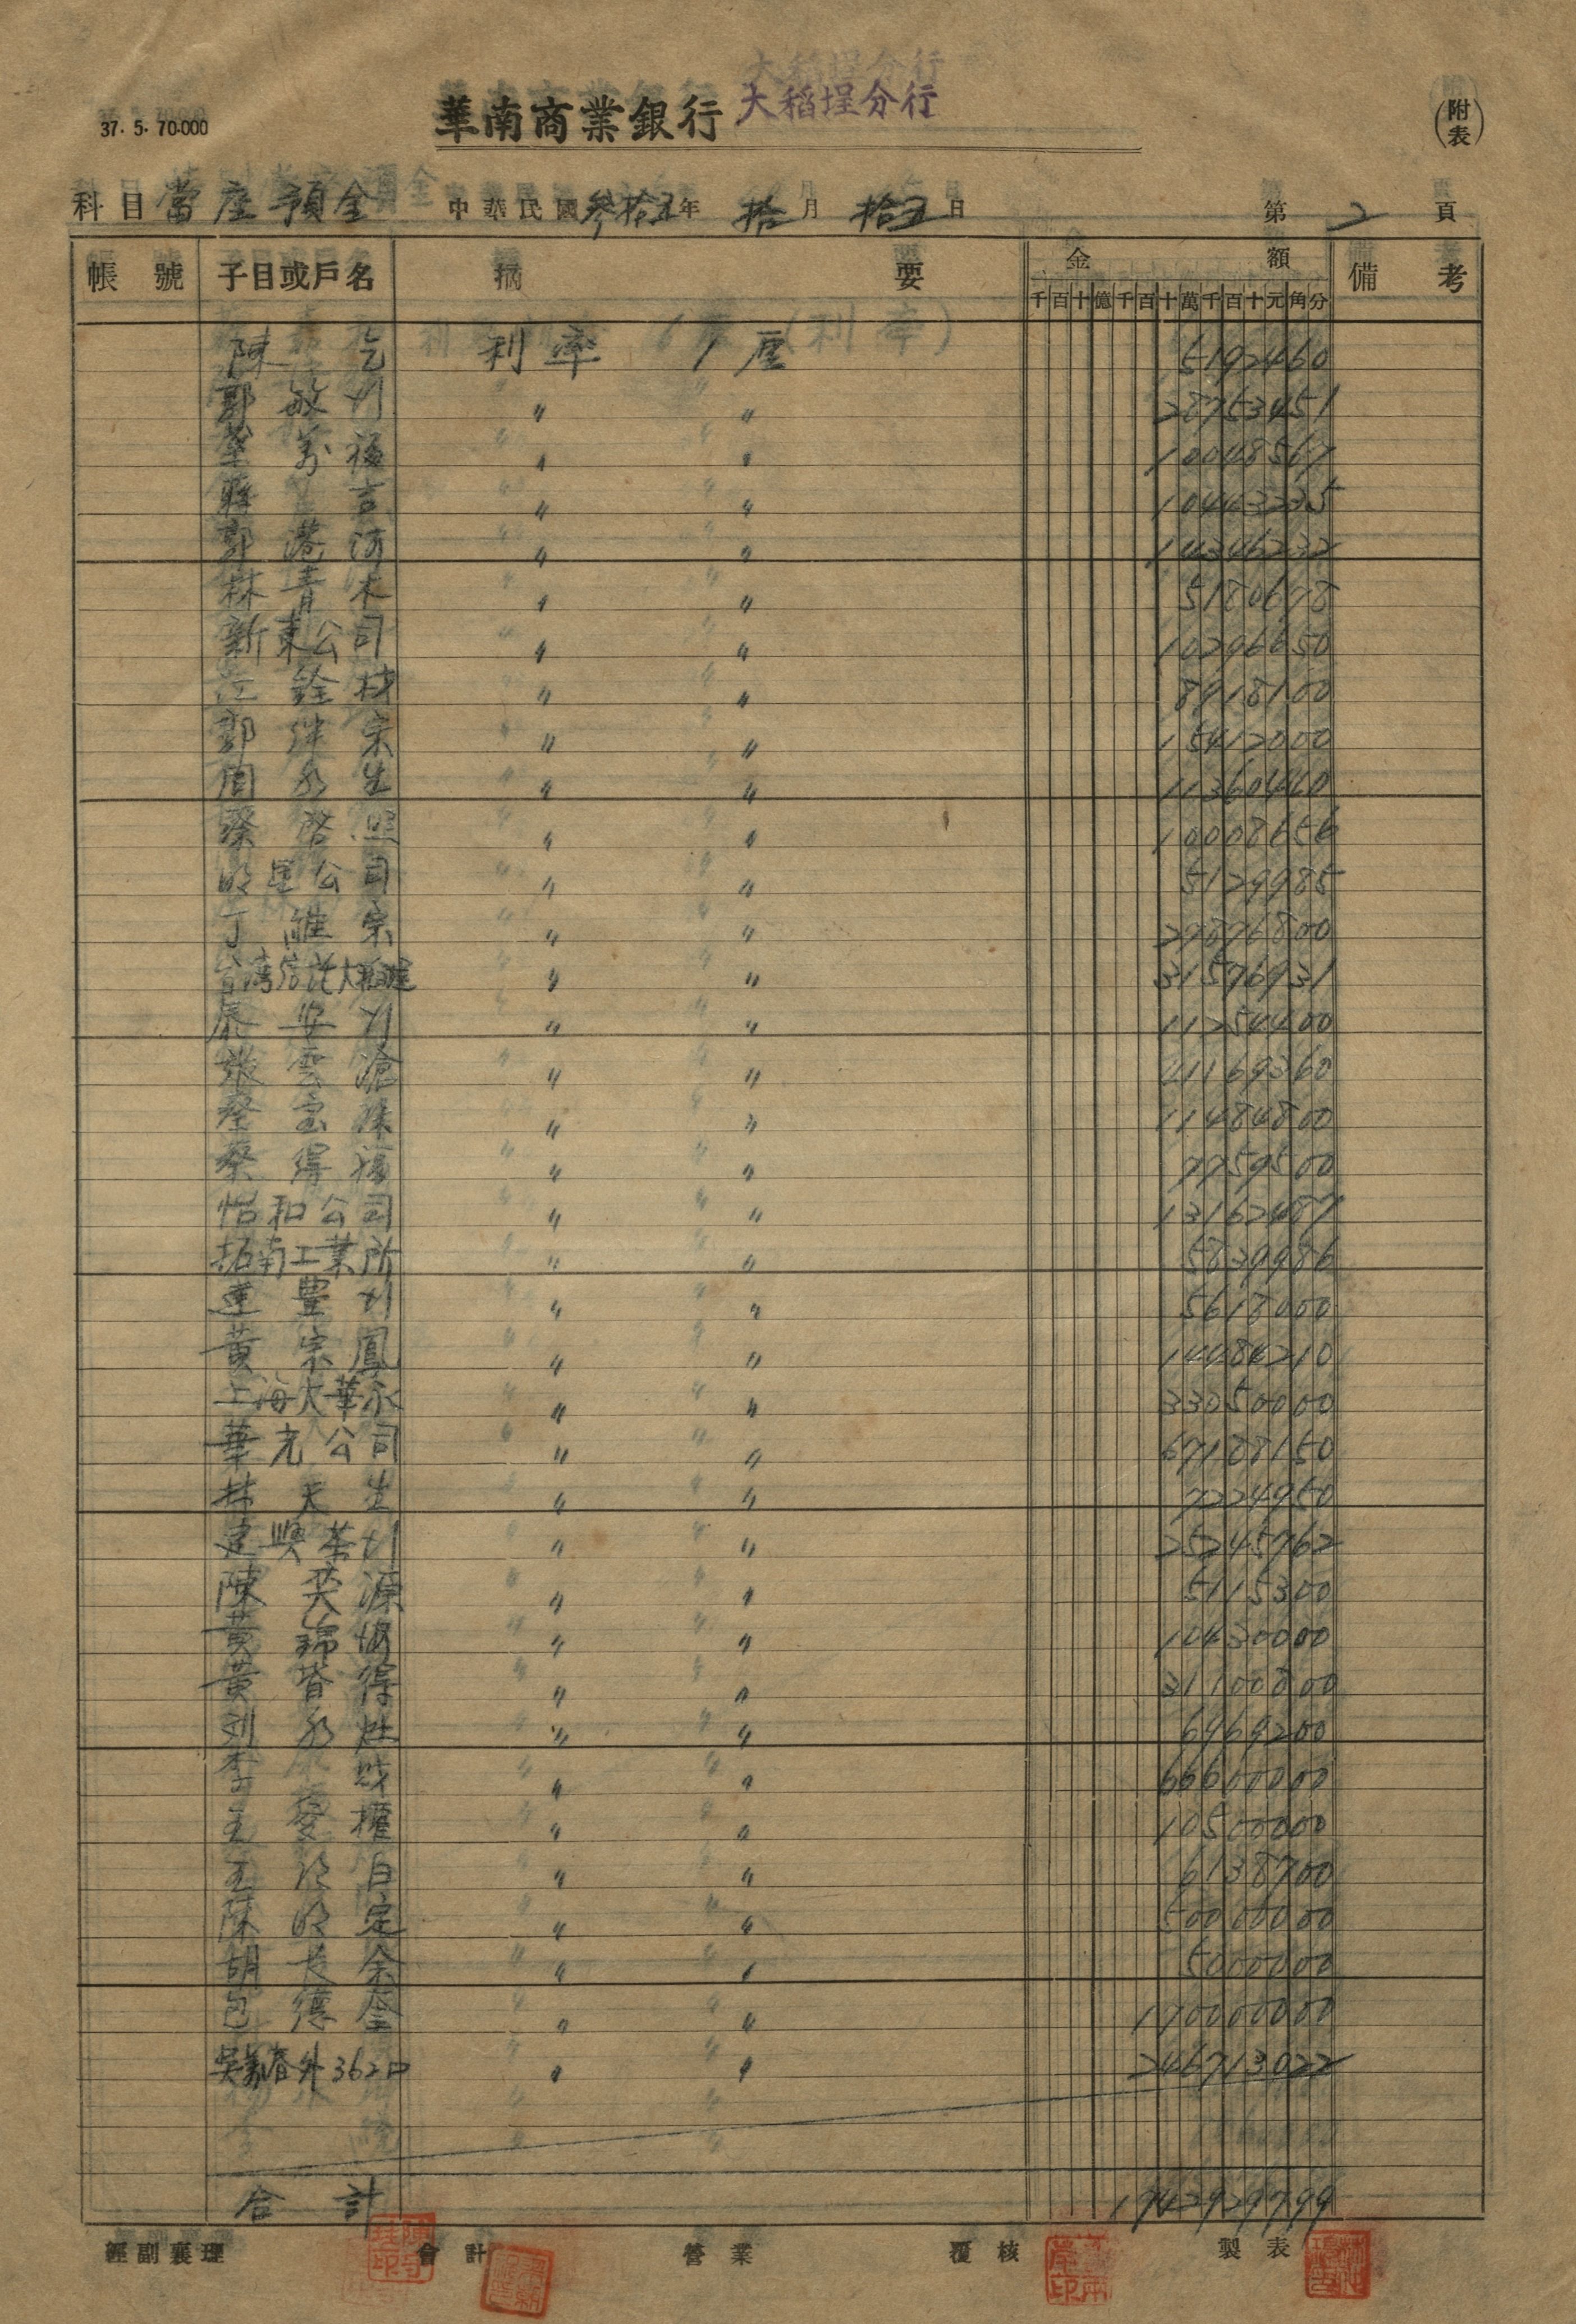 37. 5. 70.000
華南商業銀行 大稻埕分行
(附表)
科目 當座預金 中華民國 參拾五 年 拾 月 拾五 日 第 2 頁
帳號 子目或戶名 摘要 金額 備考
千百十億千百十萬千百十元角分
陳 乞 利率 1厘 5192460
郭 敏 〃 〃 28753451
萬 福 〃 〃 10048567
吉 〃 〃 10443225
郭 港 河 〃 〃 14346232
林 青 木 〃 〃 5180678
新東公司 〃 〃 10296650
江 銓 材 〃 〃 8918100
郭 宗 〃 〃 15412000
周 永 生 〃 〃 11360440
蔡 啓 照 〃 〃 10008656
明星公司 〃 〃 5129985
丁 維 宗 〃 〃 29896800
台湾信託大稻埕 〃 〃 31596931
安 〃 〃 11254400
張 雲 滄 〃 〃 21169360
蔡 宝 〃 〃 11484800
蔡 得 福 〃 〃 7759500
怡和公司 〃 〃 13162487
拓南工業所 〃 〃 5829986
連 豊 〃 〃 5618000
黃 宗 鳳 〃 〃 14484210
上海大華永 〃 〃 33050000
華光公司 〃 〃 67188150
林 天 生 〃 〃 7224950
建興茶 〃 〃 25245762
陳 英 源 〃 〃 5115300
黃 錦 〃 〃 10430000
黃 得 〃 〃 31100800
刘 永 〃 〃 6969200
李 財 〃 〃 66600000
王 權 〃 〃 10500000
王 白 〃 〃 6138700
陳 明 定 〃 〃 50000000
胡 長 余 〃 〃 5000000
包 德 〃 〃 170000000
吳萬春外362口 〃 〃 246713022
合計 1742929799
經副襄理 會計 營業 覆核 製表